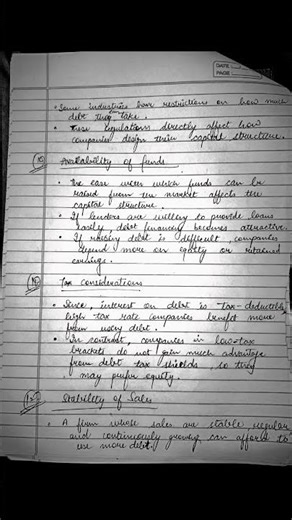 DATE
PAGE
• Some industries have restrictions on how much
debt they can take.
• These regulations directly affect how
companies design their capital structure.
Availability of funds
• The ease with which funds can be
raised from the market affects the
capital structure.
• If lenders are willing to provide loans
easily debt financing becomes attractive.
• If raising debt is difficult, companies
depend more on equity or retained
earnings.
Tax considerations
• Since, interest on debt is tax-deductible,
high tax rate companies benefit more
from using debt.
• In contrast, companies in low-tax
brackets do not gain much advantage
from debt tax shields, so they
may prefer equity.
Stability of Sales
• A firm whose sales are stable regular
and continuously growing can afford to
use more debt.